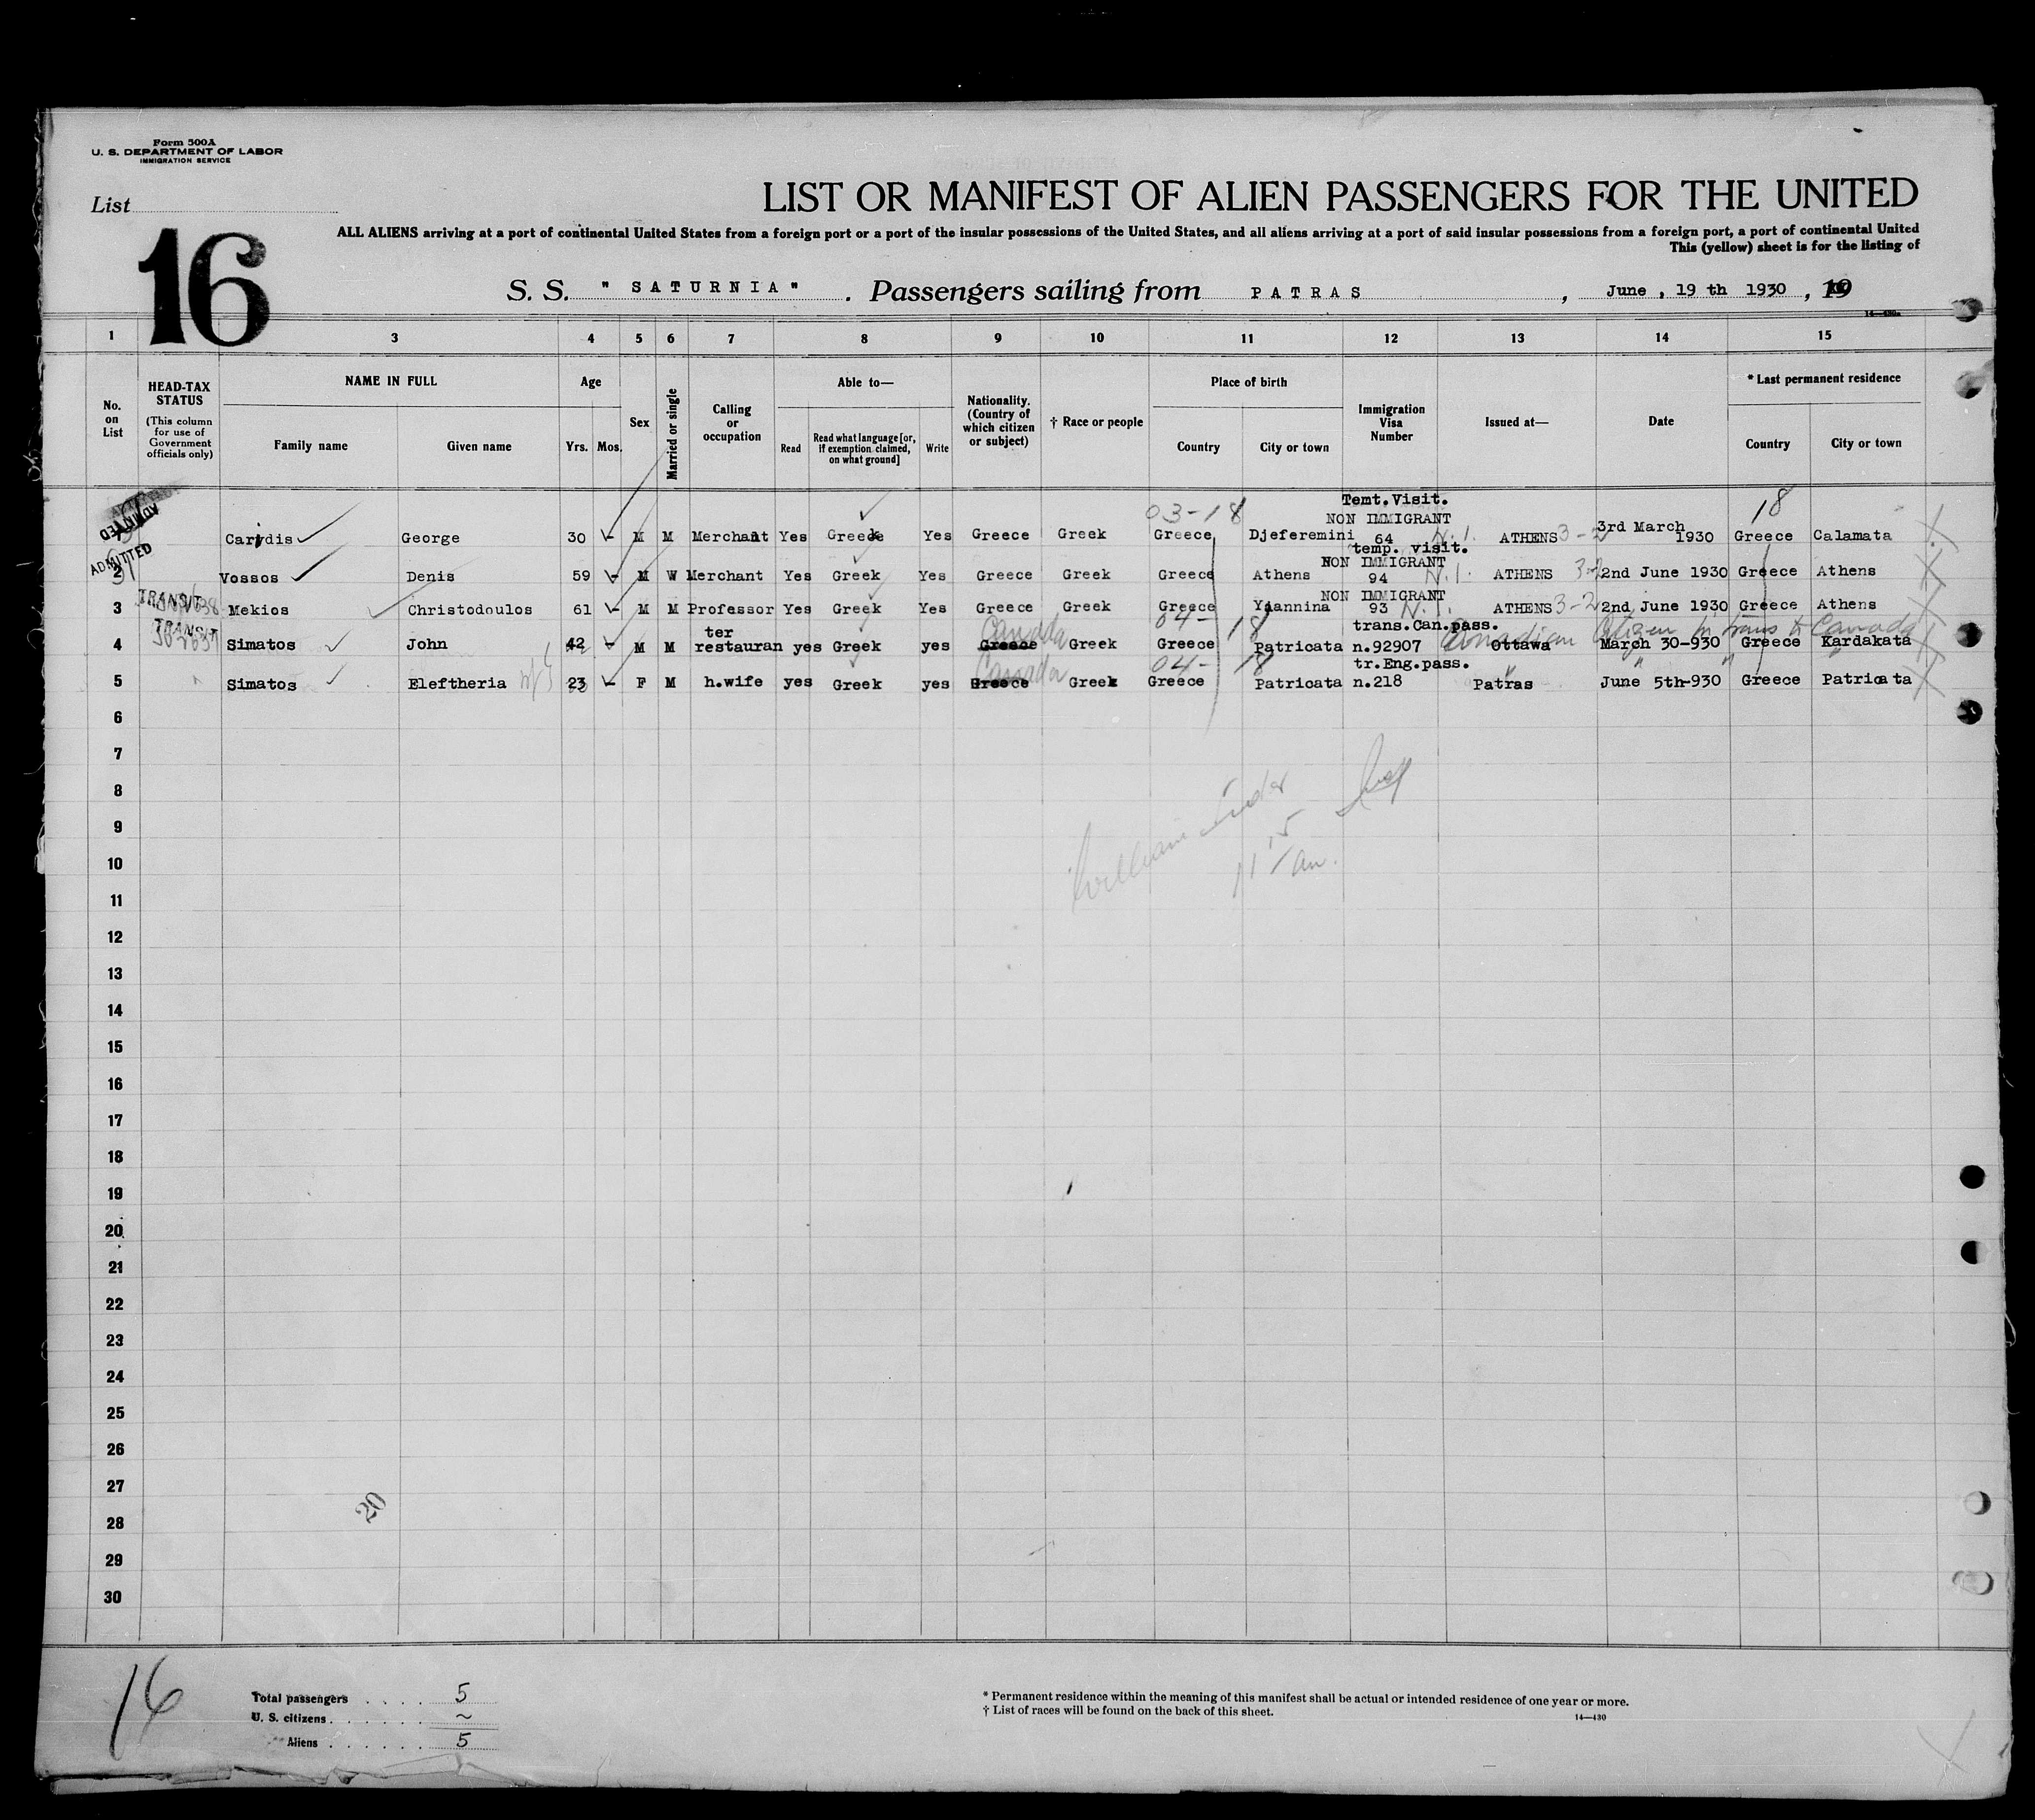 Form 500A
U. S. DEPARTMENT OF LABOR
IMMIGRATION SERVICE
List
16
LIST OR MANIFEST OF ALIEN PASSENGERS FOR THE UNITED
ALL ALIENS arriving at a port of continental United States from a foreign port or a port of the insular possessions of the United States, and all aliens arriving at a port of said insular possessions from a foreign port, a port of continental United
This (yellow) sheet is for the listing of
S. S. " SATURNIA " . Passengers sailing from PATRAS , June , 19 th 1930 , 19
14—430a
1 3 4 5 6 7 8 9 10 11 12 13 14 15
No. on List
HEAD-TAX STATUS
(This column for use of Government officials only)
NAME IN FULL
Family name Given name
Age
Yrs. Mos.
Sex
Married or single
Calling or occupation
Able to—
Read
Read what language [or, if exemption claimed, on what ground]
Write
Nationality. (Country of which citizen or subject)
† Race or people
Place of birth
Country City or town
Immigration Visa Number
Issued at—
Date
* Last permanent residence
Country City or town
Temt.Visit.
03-18 18
NON IMMIGRANT
ADMITTED Caridis George 30 - M M Merchant Yes Greek Yes Greece Greek Greece Djeferemini 64 N.I. ATHENS 3-2 3rd March 1930 Greece Calamata
temp. visit.
NON IMMIGRANT
ADMITTED 2 Vossos Denis 59 - M W Merchant Yes Greek Yes Greece Greek Greece Athens 94 N.I. ATHENS 3-2 2nd June 1930 Greece Athens
NON IMMIGRANT
3 TRANSIT Mekios Christodoulos 61 - M M Professor Yes Greek Yes Greece Greek Greece Yiannina 93 N.I. ATHENS 3-2 2nd June 1930 Greece Athens
04- 18
trans.Can.pass. Canadian Citizen in trans to Canada
4 TRANSIT Simatos John 42 M M restauran ter yes Greek yes Greece Canada Greek Greece Patricata n.92907 Ottawa March 30-930 Greece Kardakata
04- 18
tr.Eng.pass. " " " "
5 Simatos Eleftheria 23 - F M h.wife yes Greek yes Greece Canada Greek Greece Patricata n.218 Patras June 5th-930 Greece Patricata
6
7
8
9
10
11
12
13
14
15
16
17
18
19
20
21
22
23
24
25
26
27
28
29
30
William
11 15 am.
20
16
Total passengers . . . . 5
U. S. citizens . . . . . . ~
Aliens . . . . . . 5
* Permanent residence within the meaning of this manifest shall be actual or intended residence of one year or more.
† List of races will be found on the back of this sheet.
14—430